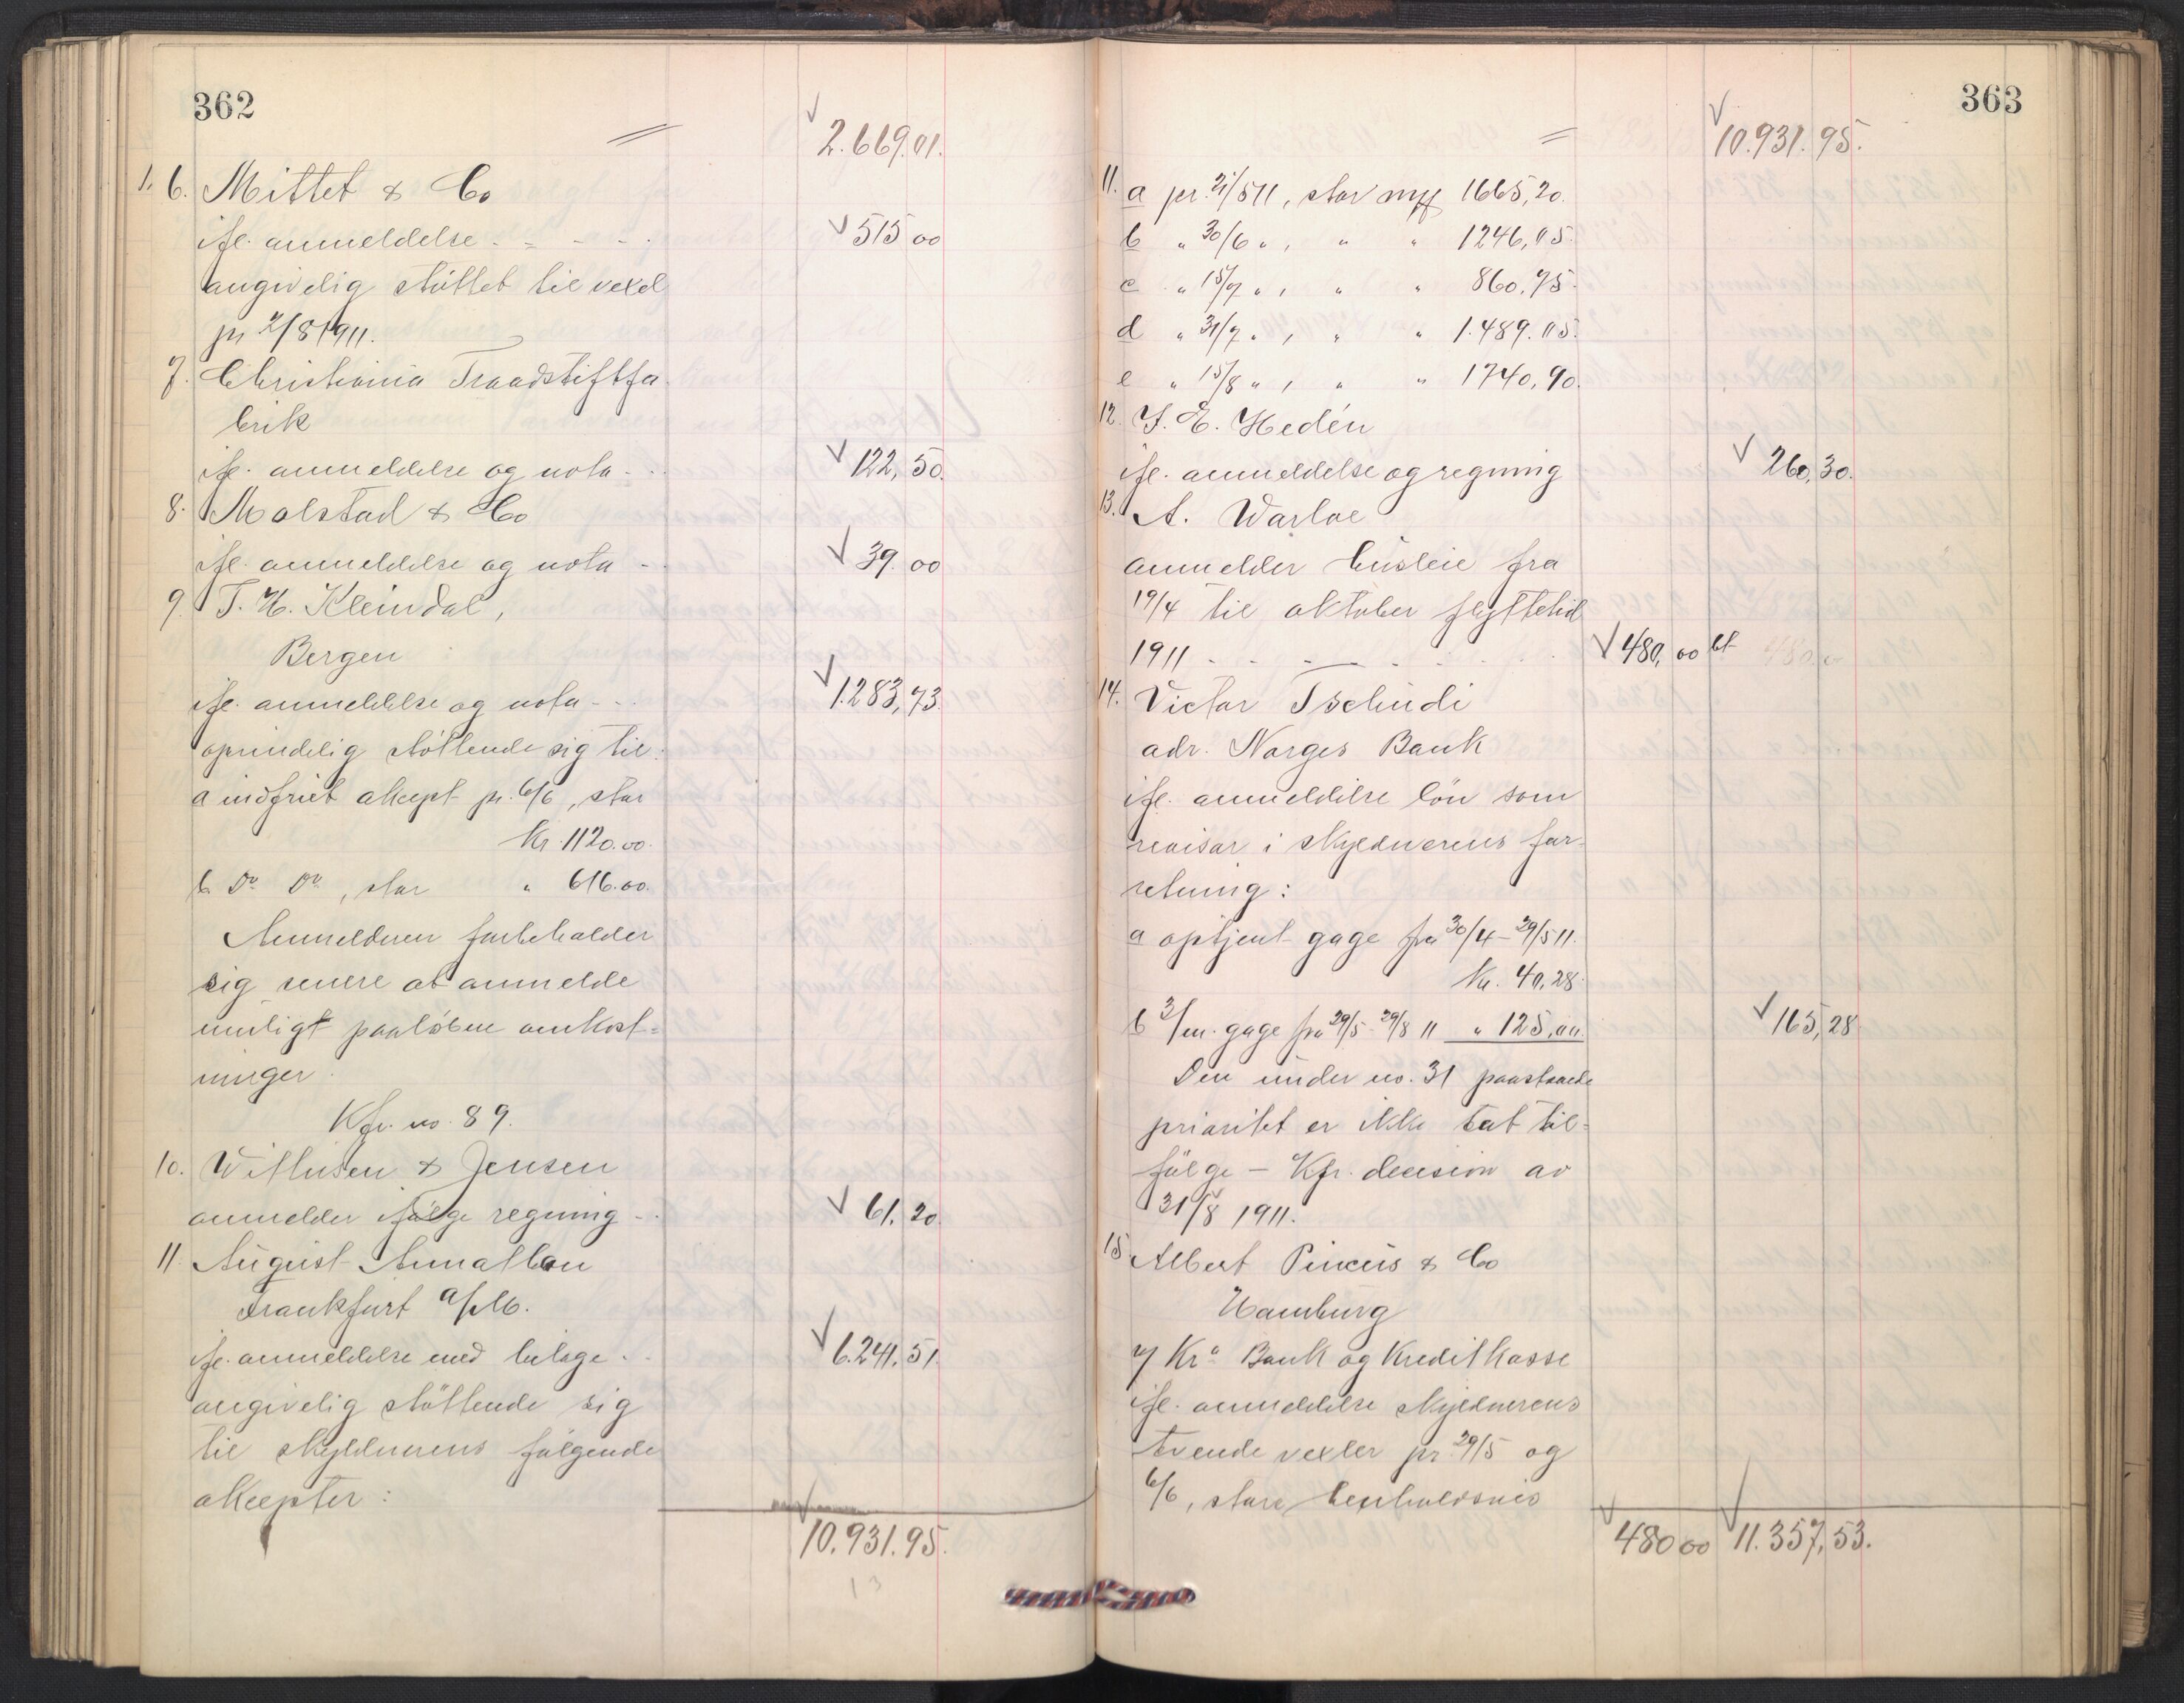 362
2.669.01.
1. 6. Mittet & Co
ifl. anmeldelse - - - - 515 00
angivelig støttet til vexel
pr 2/8 1911.
7. Christiania Traadstiftfa-
brik
ifl. anmeldelse og nota - - 122,50.
8. Malstad & Co
ifl. anmeldelse og nota - - 39.00
9. T. H. Kleindal,
Bergen
ifl. anmeldelse og nota - - - 1.283,73.
oprindelig støttende sig til:
a indfriet akcept pr. 6/6, stor
Kr. 1120.00.
b Do Do, stor " 616.00.
Anmelderen forbeholder
sig senere at anmelde
muligt paaløbne omkost-
ninger.
Kfr. no. 89.
10. Withusen & Jensen
anmelder ifølge regning - - 61,20
11. August
Frankfurt a/M.
ifl. anmeldelse med bilage - - 6.241,51.
angivelig støttende sig
til skyldnerens følgende
akcepter:
10.931.95.
13
363
10.931.95.
11. a pr. 21/5 11, stor 1665,20.
b " 30/6 ", " " 1246,05.
c " 15/7 ", " " 860,75.
d " 31/7 ", " " 1.489.05.
e " 15/8 ", " " 1740,90.
12. J. E. Hedén
ifl. anmeldelse og regning 260,30.
13. A. Warloe
anmelder husleie fra
19/4 til oktober flyttetid
1911 - - - - - - - 480,00 bt 480,00
14. Victor Tschudi
adr. Norges Bank
ifl. anmeldelse løn som
revisor i skyldnerens for-
retning:
a optjent gage fra 30/4 - 29/5 11.
Kr. 40,28.
b 3/m. gage fra 29/5 - 29/8 11 " 125,00. 165,28
Den under no. 31 paastaaede
prioritet er ikke tat til-
følge - Kfr. decision av
31/8 1911.
15. Albert Pincus & Co
Hamburg
v/ Kra Bank og Kreditkasse
ifl. anmeldelse skyldnerens
tvende vexler pr. 29/5 og
6/6, store henholdsvis
480 00 11.357,53.